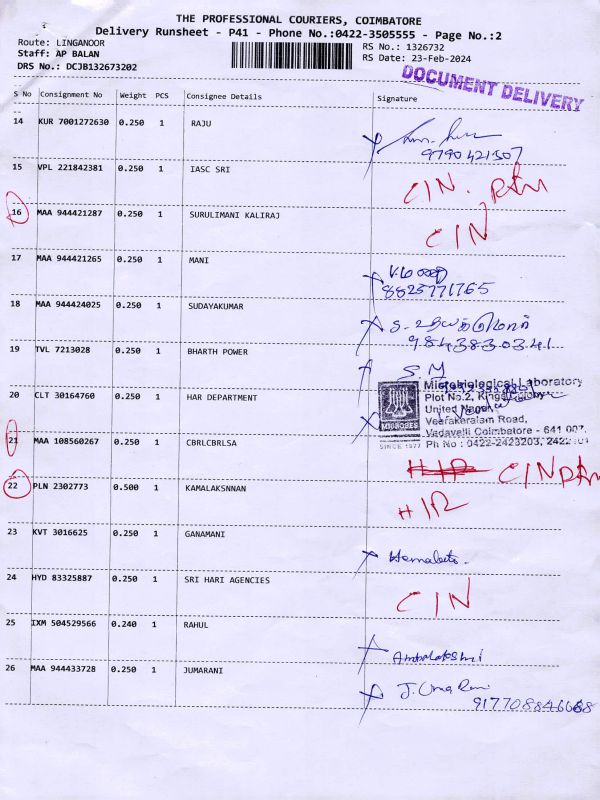 THE PROFESSIONAL COURIERS, COIMBATORE
Delivery Runsheet - P41 - Phone No.:0422-3505555 - Page No.:2
Route: LINGANOOR
RS No.: 1326732
Staff: AP BALAN
RS Date: 23-Feb-2024
DRS No.: DCJB132673202
DOCUMENT DELIVERY
S No Consignment No Weight PCS Consignee Details Signature
14 KUR 7001272630 0.250 1 RAJU
9790421507
15 VPL 221842381 0.250 1 IASC SRI CIN.
16 MAA 944421287 0.250 1 SURULIMANI KALIRAJ CIN
17 MAA 944421265 0.250 1 MANI
8825771765
18 MAA 944424025 0.250 1 SUDAYAKUMAR
9843830341
19 TVL 7213028 0.250 1 BHARTH POWER S.M
20 CLT 30164760 0.250 1 HAR DEPARTMENT
Microbiological Laboratory
Plot No.2,
United Nagar,
Veerakeralam Road,
Vadavelli Coimbatore - 641 007,
Ph No : 0422-2423203,
MICROBES
SINCE 1977
21 MAA 108560267 0.250 1 CBRLCBRLSA CIN
22 PLN 2302773 0.500 1 KAMALAKSNNAN
23 KVT 3016625 0.250 1 GANAMANI
24 HYD 83325887 0.250 1 SRI HARI AGENCIES CIN
25 IXM 504529566 0.240 1 RAHUL
26 MAA 944433728 0.250 1 JUMARANI J. Uma Rani